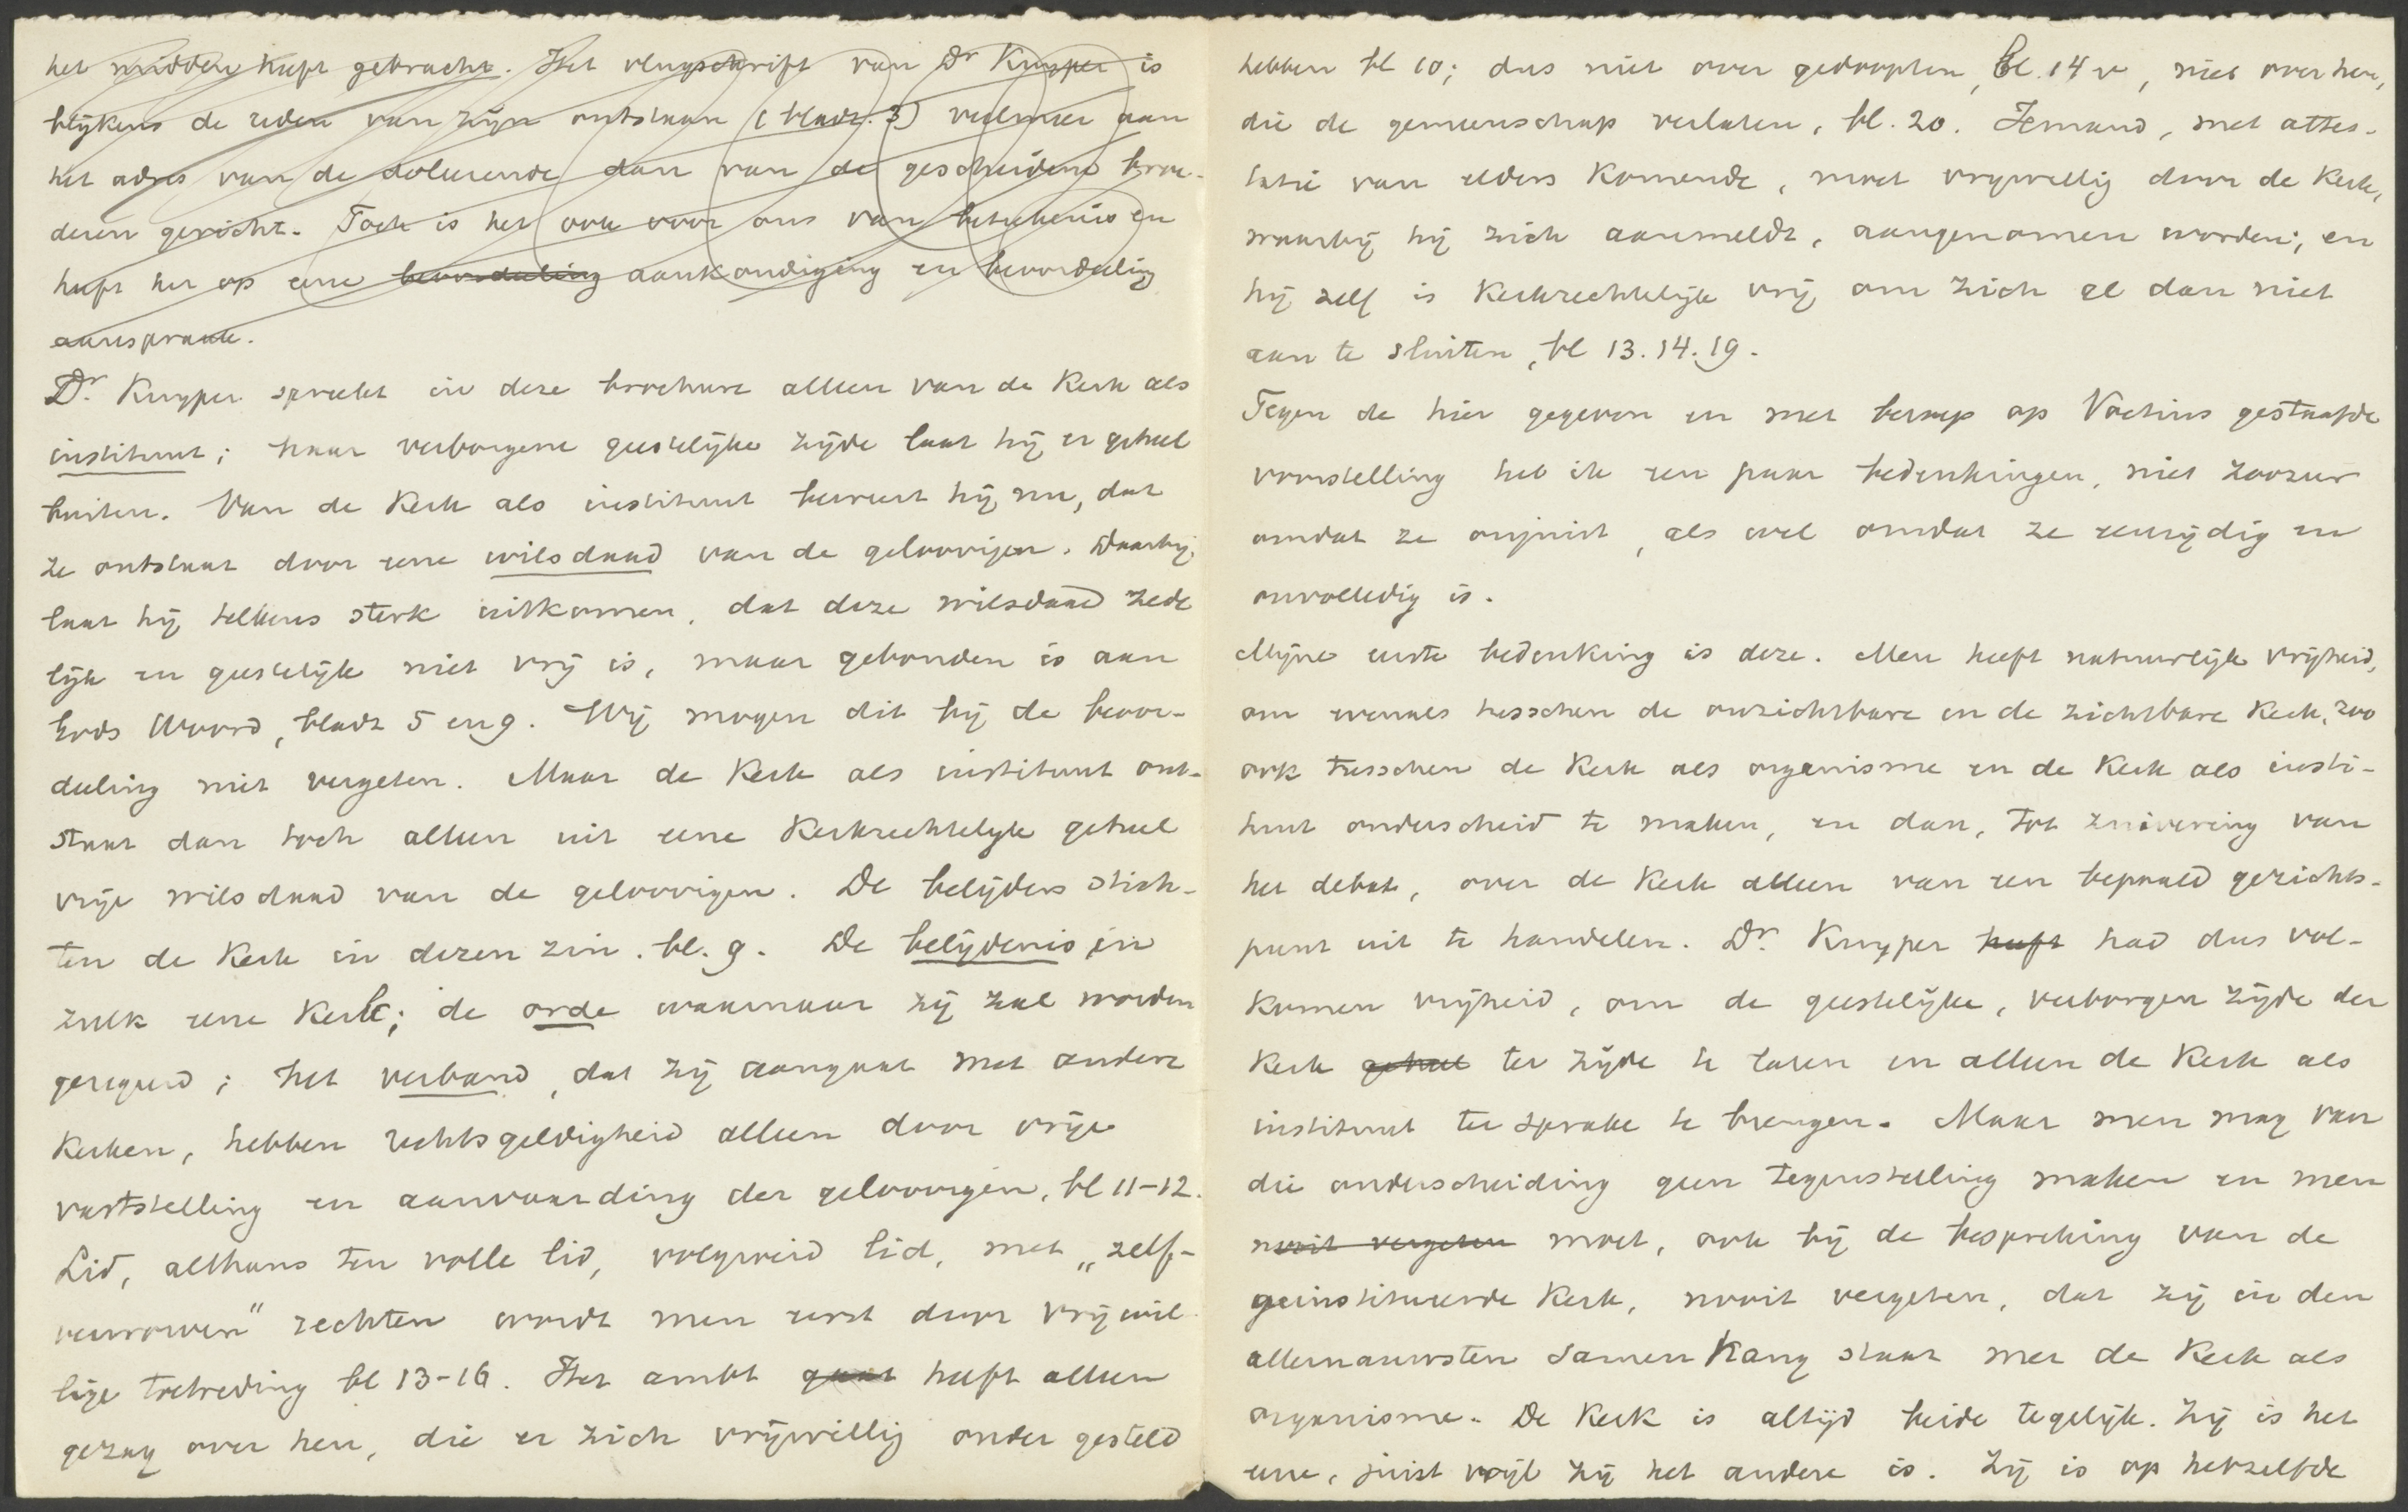 het midden heeft gebracht. Het vlugschrift van Dr Kuyper is
blijkens de reden van zijn ontstaan (bladz. 3) veelmeer aan
het adres van de doleerende dan van de gescheidene broe-
deren gericht. Toch is het ook voor ons van beteekenis en
heeft het op eene beoordeeling aankondiging en beoordeeling
aanspraak.
Dr. Kuyper spreekt in deze brochure alleen van de Kerk als
instituut; haar verborgene geestelijke zijde laat hij er geheel
buiten. Van de Kerk als instituut beweert hij nu, dat
ze ontstaat door eene wilsdaad van de geloovigen. Daarbij
laat hij telkens sterk uitkomen, dat deze wilsdaad zede
lijk en geestelijk niet vrij is, maar gebonden is aan
Gods Woord, bladz 5 en 9. Wij mogen dit bij de beoor-
deeling niet vergeten. Maar de Kerk als instituut ont-
staat dan toch alleen uit eene Kerkrechtelijk geheel
vrije wilsdaad van de geloovigen. De belijders stich-
ten de Kerk in dezen zin. bl. 9. De belijdenis in
zulk eene Kerk; de orde waarnaar zij zal worden
geregeerd; het verband, dat zij aangaat met andere
Kerken, hebben rechtsgeldigheid alleen door vrije
vaststelling en aanvaarding der geloovigen, bl 11-12.
Lid, althans ten volle lid, volgroeid lid, met „zelf-
verworven" rechten wordt men eerst door vrijwil
lige toetreding bl 13-16. Het ambt gaat heeft alleen
gezag over hen, die er zich vrijwillig onder gesteld
hebben bl 10; dus niet over gedoopten, bl. 14 v, niet over hen,
die de gemeenschap verlaten, bl. 20. Iemand, met attes-
tatie van elders Komende, moet vrijwillig door de Kerk,
waarbij hij zich aanmeldt, aangenomen worden; en
hij zelf is Kerkrechtelijk vrij om zich al dan niet
aan te sluiten, bl 13. 14. 19.
Tegen de hier gegeven en met beroep op Voetius gestaafde
voorstelling heb ik een paar bedenkingen, niet zoozeer
omdat ze onjuist, als wel omdat ze eenzijdig en
onvolledig is.
Mijne eerste bedenking is deze. Men heeft natuurlijk vrijheid,
om evenals tusschen de onzichtbare en de zichtbare Kerk, zoo
ook tusschen de Kerk als organisme en de Kerk als insti-
tuut onderscheid te maken, en dan, tot zuivering van
het debat, over de Kerk alleen van een bepaald gezichts-
punt uit te handelen. Dr. Kuyper heeft had dus vol-
komen vrijheid, om de geestelijke, verborgen zijde der
Kerk geheel ter zijde te laten en alleen de Kerk als
instituut ter sprake te brengen. Maar men mag van
die onderscheiding geen tegenstelling maken en men
nooit vergeten moet, ook bij de bespreking van de
geinstitueerde Kerk, nooit vergeten, dat zij in den
allernauwsten samenhang staat met de Kerk als
organisme. De Kerk is altijd beide tegelijk. Zij is het
eene, juist wijl zij het andere is. Zij is op hetzelfde